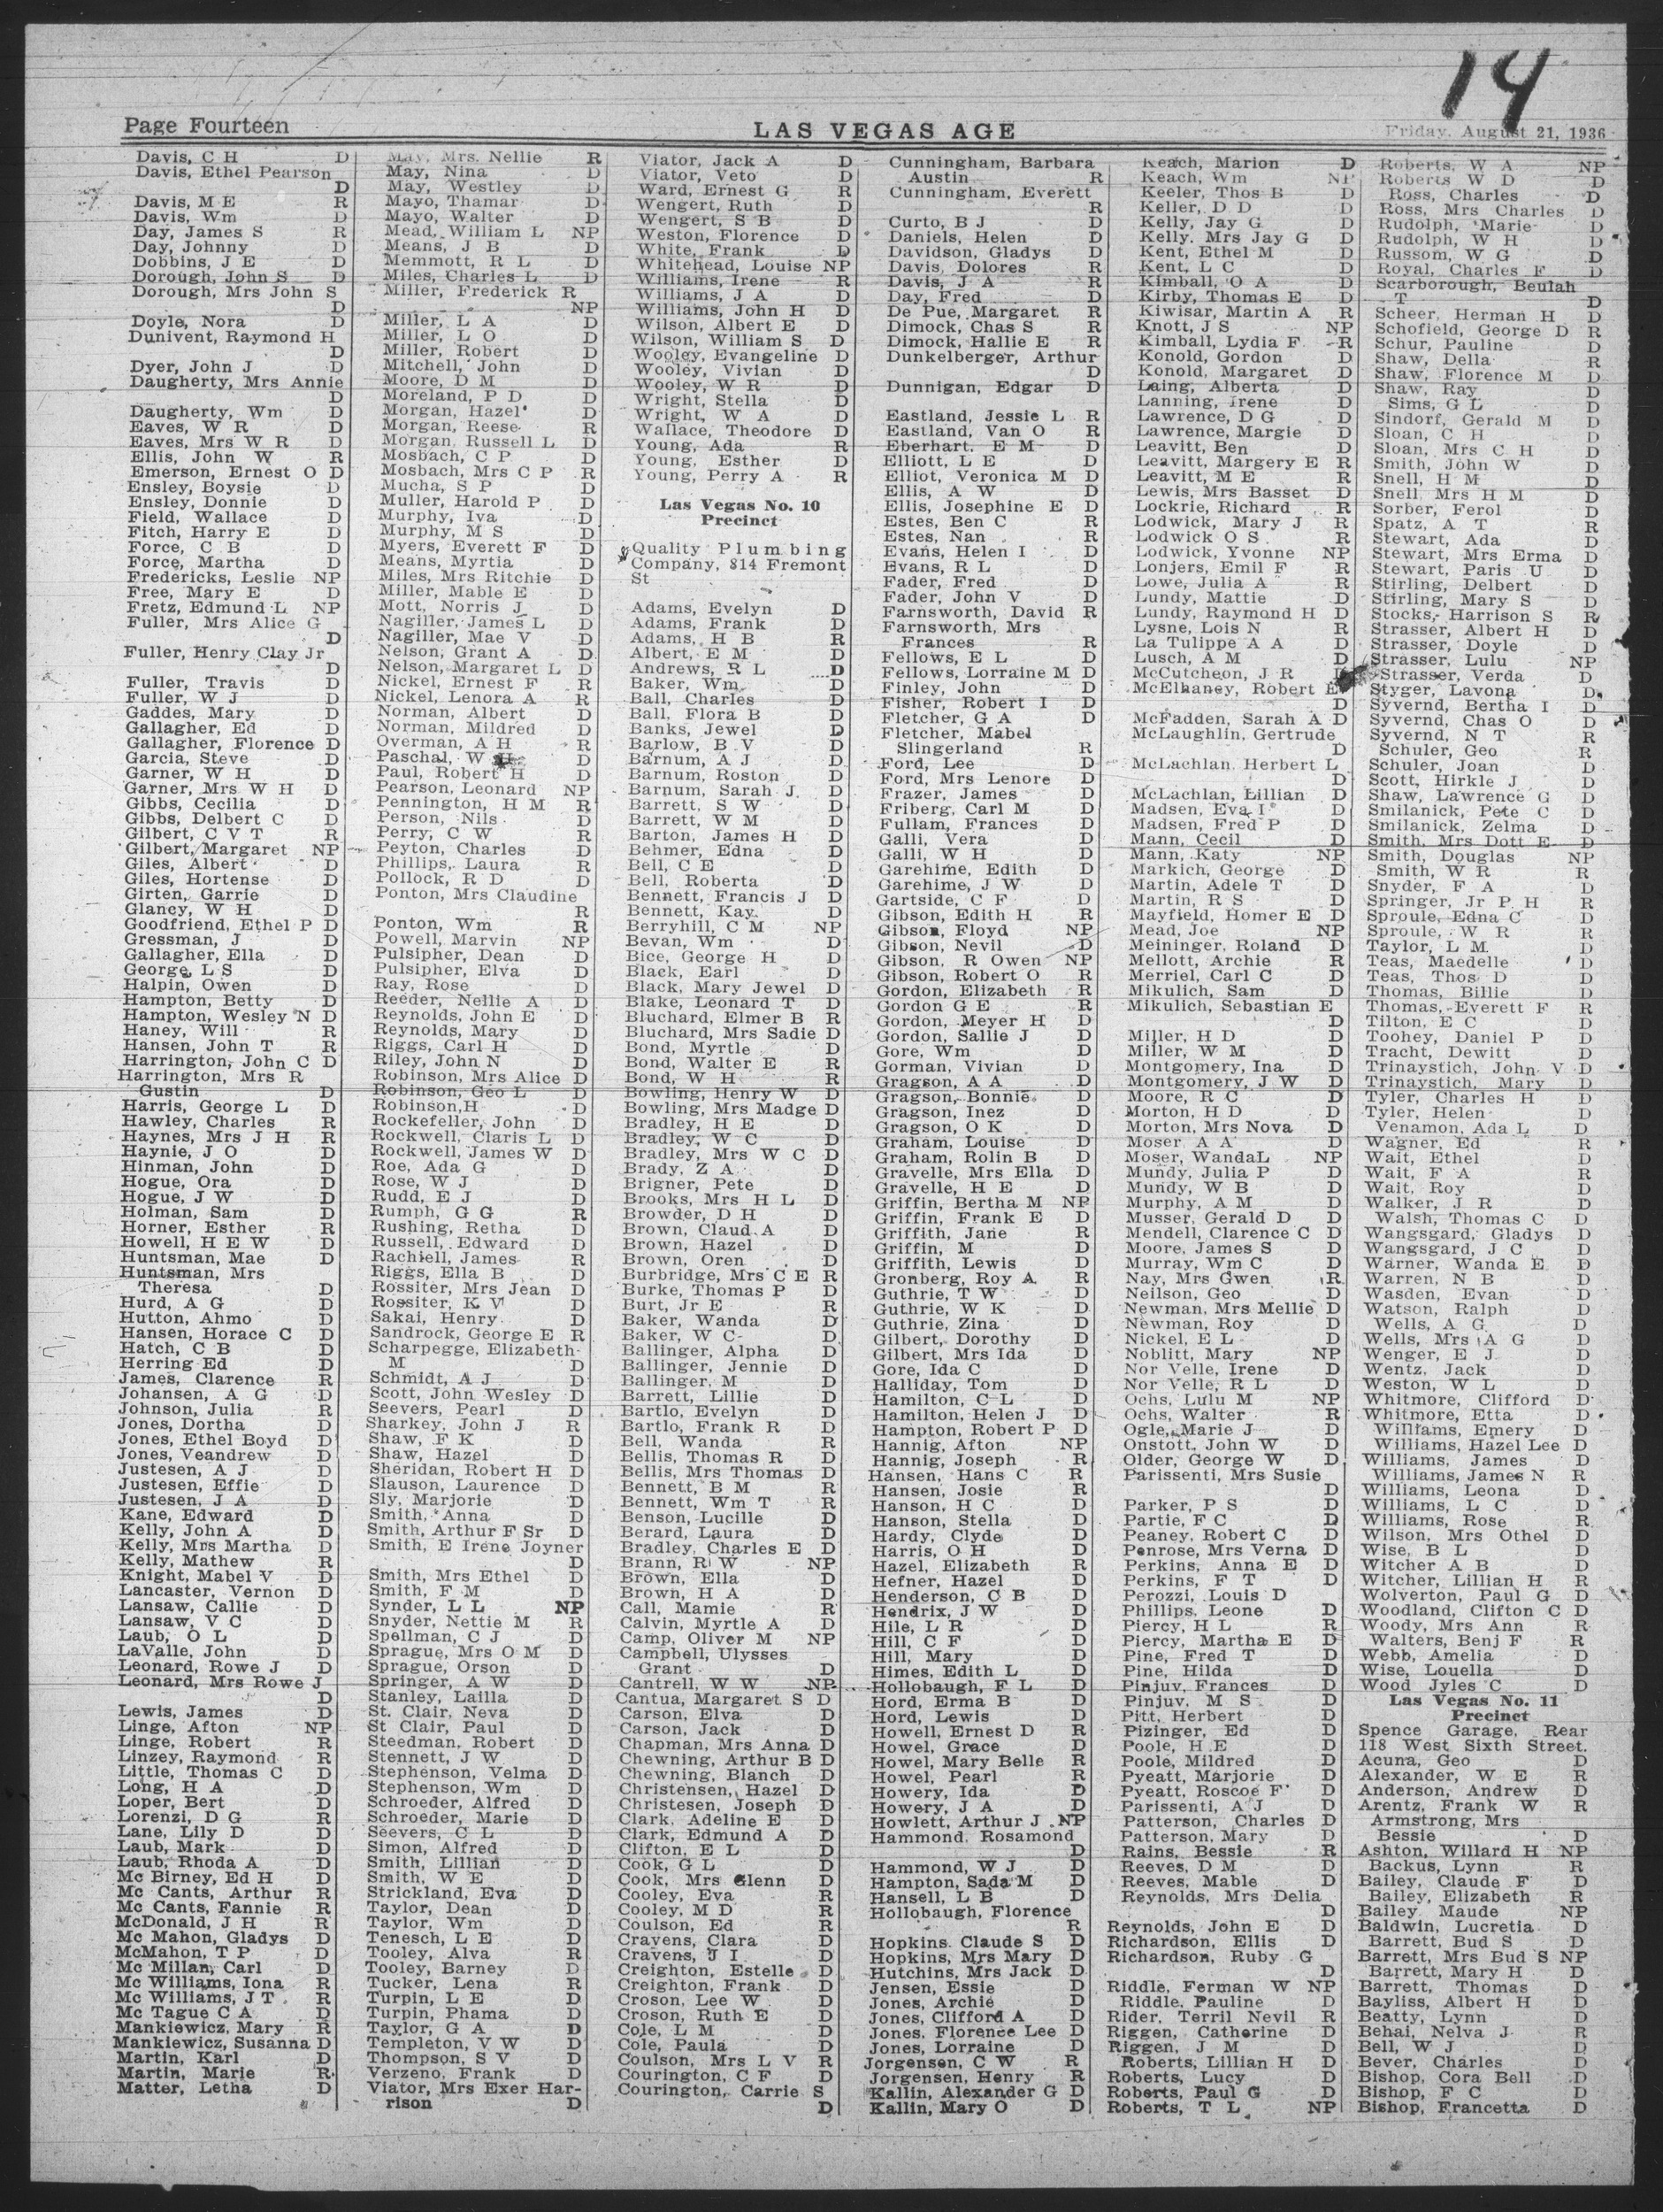 14
Page Fourteen
LAS VEGAS AGE
Friday, August 21, 1936
Davis, C H D
Davis, Ethel Pearson
D
Davis, M E R
Davis, Wm D
Day, James S R
Day, Johnny D
Dobbins, J E D
Dorough, John S D
Dorough, Mrs John S
D
Doyle, Nora D
Dunivent, Raymond H
D
Dyer, John J D
Daugherty, Mrs Annie
D
Daugherty, Wm D
Eaves, W R D
Eaves, Mrs W R D
Ellis, John W R
Emerson, Ernest O D
Ensley, Boysie D
Ensley, Donnie D
Field, Wallace D
Fitch, Harry E D
Force, C B D
Force, Martha D
Fredericks, Leslie NP
Free, Mary E D
Fretz, Edmund L NP
Fuller, Mrs Alice G
D
Fuller, Henry Clay Jr
D
Fuller, Travis D
Fuller, W J D
Gaddes, Mary D
Gallagher, Ed D
Gallagher, Florence D
Garcia, Steve D
Garner, W H D
Garner, Mrs W H D
Gibbs, Cecilia D
Gibbs, Delbert C D
Gilbert, C V T R
Gilbert, Margaret NP
Giles, Albert D
Giles, Hortense D
Girten, Garrie D
Glancy, W H D
Goodfriend, Ethel P D
Gressman, J D
Gallagher, Ella D
George, L S D
Halpin, Owen D
Hampton, Betty D
Hampton, Wesley N D
Haney, Will R
Hansen, John T R
Harrington, John C D
Harrington, Mrs R
Gustin D
Harris, George L D
Hawley, Charles R
Haynes, Mrs J H R
Haynie, J O D
Hinman, John D
Hogue, Ora D
Hogue, J W D
Holman, Sam D
Horner, Esther R
Howell, H E W D
Huntsman, Mae D
Huntsman, Mrs
Theresa D
Hurd, A G D
Hutton, Ahmo D
Hansen, Horace C D
Hatch, C B D
Herring Ed D
James, Clarence R
Johansen, A G D
Johnson, Julia R
Jones, Dortha D
Jones, Ethel Boyd D
Jones, Veandrew D
Justesen, A J D
Justesen, Effie D
Justesen, J A D
Kane, Edward D
Kelly, John A D
Kelly, Mrs Martha D
Kelly, Mathew R
Knight, Mabel V D
Lancaster, Vernon D
Lansaw, Callie D
Lansaw, V C D
Laub, O L D
LaValle, John D
Leonard, Rowe J D
Leonard, Mrs Rowe J
D
Lewis, James D
Linge, Afton NP
Linge, Robert R
Linzey, Raymond R
Little, Thomas C D
Long, H A D
Loper, Bert D
Lorenzi, D G R
Lane, Lily D D
Laub, Mark D
Laub, Rhoda A D
Mc Birney, Ed H D
Mc Cants, Arthur R
Mc Cants, Fannie R
McDonald, J H R
Mc Mahon, Gladys D
McMahon, T P D
Mc Millan, Carl D
Mc Williams, Iona R
Mc Williams, J T R
Mc Tague C A D
Mankiewicz, Mary R
Mankiewicz, Susanna D
Martin, Karl D
Martin, Marie R
Matter, Letha D
May, Mrs. Nellie R
May, Nina D
May, Westley D
Mayo, Thamar D
Mayo, Walter D
Mead, William L NP
Means, J B D
Memmott, R L D
Miles, Charles L D
Miller, Frederick R
NP
Miller, L A D
Miller, L O D
Miller, Robert D
Mitchell, John D
Moore, D M D
Moreland, P D D
Morgan, Hazel D
Morgan, Reese D
Morgan, Russell L D
Mosbach, C P D
Mosbach, Mrs C P R
Mucha, S P D
Muller, Harold P D
Murphy, Iva D
Murphy, M S D
Myers, Everett F D
Means, Myrtia D
Miles, Mrs Ritchie D
Miller, Mable E D
Mott, Norris J D
Nagiller, James L D
Nagiller, Mae V D
Nelson, Grant A D
Nelson, Margaret L D
Nickel, Ernest F R
Nickel, Lenora A R
Norman, Albert D
Norman, Mildred D
Overman, A H R
Paschal, W H D
Paul, Robert H D
Pearson, Leonard NP
Pennington, H M R
Person, Nils D
Perry, C W R
Peyton, Charles D
Phillips, Laura R
Pollock, R D D
Ponton, Mrs Claudine
R
Ponton, Wm R
Powell, Marvin NP
Pulsipher, Dean D
Pulsipher, Elva D
Ray, Rose D
Reeder, Nellie A D
Reynolds, John E D
Reynolds, Mary D
Riggs, Carl H D
Riley, John N D
Robinson, Mrs Alice D
Robinson, Geo L D
Robinson, H D
Rockefeller, John D
Rockwell, Claris L D
Rockwell, James W D
Roe, Ada G D
Rose, W J D
Rudd, E J D
Rumph, G G R
Rushing, Retha D
Russell, Edward D
Rachiell, James R
Riggs, Ella B D
Rossiter, Mrs Jean D
Rossiter, K V D
Sakai, Henry D
Sandrock, George E R
Scharpegge, Elizabeth
M D
Schmidt, A J D
Scott, John Wesley D
Seevers, Pearl D
Sharkey, John J R
Shaw, F K D
Shaw, Hazel D
Sheridan, Robert H D
Slauson, Laurence D
Sly, Marjorie D
Smith, Anna D
Smith, Arthur F Sr D
Smith, E Irene Joyner
D
Smith, Mrs Ethel D
Smith, F M D
Synder, L L NP
Snyder, Nettie M R
Spellman, C J D
Sprague, Mrs O M D
Sprague, Orson D
Springer, A W D
Stanley, Lailla D
St. Clair, Neva D
St Clair, Paul D
Steedman, Robert D
Stennett, J W D
Stephenson, Velma D
Stephenson, Wm D
Schroeder, Alfred D
Schroeder, Marie D
Seevers, C L D
Simon, Alfred D
Smith, Lillian D
Smith, W E D
Strickland, Eva D
Taylor, Dean D
Taylor, Wm D
Tenesch, L E D
Tooley, Alva R
Tooley, Barney D
Tucker, Lena R
Turpin, L E D
Turpin, Phama D
Taylor, G A D
Templeton, V W D
Thompson, S V D
Verzeno, Frank D
Viator, Mrs Exer Har-
rison D
Viator, Jack A D
Viator, Veto D
Ward, Ernest G R
Wengert, Ruth D
Wengert, S B D
Weston, Florence D
White, Frank D
Whitehead, Louise NP
Williams, Irene R
Williams, J A D
Williams, John H D
Wilson, Albert E D
Wilson, William S D
Wooley, Evangeline D
Wooley, Vivian D
Wooley, W R D
Wright, Stella D
Wright, W A D
Wallace, Theodore D
Young, Ada R
Young, Esther D
Young, Perry A R
Las Vegas No. 10
Precinct
Quality Plumbing
Company, 814 Fremont
St
Adams, Evelyn D
Adams, Frank D
Adams, H B R
Albert, E M D
Andrews, R L D
Baker, Wm D
Ball, Charles D
Ball, Flora B D
Banks, Jewel D
Barlow, B V D
Barnum, A J D
Barnum, Roston D
Barnum, Sarah J D
Barrett, S W D
Barrett, W M D
Barton, James H D
Behmer, Edna D
Bell, C E D
Bell, Roberta D
Bennett, Francis J D
Bennett, Kay D
Berryhill, C M NP
Bevan, Wm D
Bice, George H D
Black, Earl D
Black, Mary Jewel D
Blake, Leonard T D
Bluchard, Elmer B R
Bluchard, Mrs Sadie D
Bond, Myrtle D
Bond, Walter E R
Bond, W H R
Bowling, Henry W D
Bowling, Mrs Madge D
Bradley, H E D
Bradley, W C D
Bradley, Mrs W C D
Brady, Z A D
Brigner, Pete D
Brooks, Mrs H L D
Browder, D H D
Brown, Claud A D
Brown, Hazel D
Brown, Oren D
Burbridge, Mrs C E R
Burke, Thomas P D
Burt, Jr E R
Baker, Wanda D
Baker, W C D
Ballinger, Alpha D
Ballinger, Jennie D
Ballinger, M D
Barrett, Lillie D
Bartlo, Evelyn D
Bartlo, Frank R D
Bell, Wanda R
Bellis, Thomas R D
Bellis, Mrs Thomas D
Bennett, B M R
Bennett, Wm T R
Benson, Lucille D
Berard, Laura D
Bradley, Charles E D
Brann, R W NP
Brown, Ella D
Brown, H A D
Call, Mamie R
Calvin, Myrtle A D
Camp, Oliver M NP
Campbell, Ulysses
Grant D
Cantrell, W W NP
Cantua, Margaret S D
Carson, Elva D
Carson, Jack D
Chapman, Mrs Anna D
Chewning, Arthur B D
Chewning, Blanch D
Christensen, Hazel D
Christesen, Joseph D
Clark, Adeline E D
Clark, Edmund A D
Clifton, E L D
Cook, G L D
Cook, Mrs Glenn D
Cooley, Eva R
Cooley, M D R
Coulson, Ed R
Cravens, Clara D
Cravens, J I D
Creighton, Estelle D
Creighton, Frank D
Croson, Lee W D
Croson, Ruth E D
Cole, L M D
Cole, Paula D
Coulson, Mrs L V R
Courington, C F D
Courington, Carrie S
D
Cunningham, Barbara
Austin R
Cunningham, Everett
R
Curto, B J D
Daniels, Helen D
Davidson, Gladys D
Davis, Dolores R
Davis, J A R
Day, Fred D
De Pue, Margaret R
Dimock, Chas S R
Dimock, Hallie E R
Dunkelberger, Arthur
D
Dunnigan, Edgar D
Eastland, Jessie L R
Eastland, Van O R
Eberhart, E M D
Elliott, L E D
Elliot, Veronica M D
Ellis, A W D
Ellis, Josephine E D
Estes, Ben C R
Estes, Nan R
Evans, Helen I D
Evans, R L D
Fader, Fred D
Fader, John V D
Farnsworth, David R
Farnsworth, Mrs
Frances R
Fellows, E L D
Fellows, Lorraine M D
Finley, John D
Fisher, Robert I D
Fletcher, G A D
Fletcher, Mabel
Slingerland R
Ford, Lee D
Ford, Mrs Lenore D
Frazer, James D
Friberg, Carl M D
Fullam, Frances D
Galli, Vera D
Galli, W H D
Garehime, Edith D
Garehime, J W D
Gartside, C F D
Gibson, Edith H R
Gibson, Floyd NP
Gibson, Nevil D
Gibson, R Owen NP
Gibson, Robert O R
Gordon, Elizabeth R
Gordon G E R
Gordon, Meyer H D
Gordon, Sallie J D
Gore, Wm D
Gorman, Vivian D
Gragson, A A D
Gragson, Bonnie D
Gragson, Inez D
Gragson, O K D
Graham, Louise D
Graham, Rolin B D
Gravelle, Mrs Ella D
Gravelle, H E D
Griffin, Bertha M NP
Griffin, Frank E D
Griffith, Jane R
Griffin, M D
Griffith, Lewis D
Gronberg, Roy A R
Guthrie, T W D
Guthrie, W K D
Guthrie, Zina D
Gilbert, Dorothy D
Gilbert, Mrs Ida D
Gore, Ida C D
Halliday, Tom D
Hamilton, C L D
Hamilton, Helen J D
Hampton, Robert P D
Hannig, Afton NP
Hannig, Joseph R
Hansen, Hans C R
Hansen, Josie R
Hanson, H C D
Hanson, Stella D
Hardy, Clyde D
Harris, O H D
Hazel, Elizabeth R
Hefner, Hazel D
Henderson, C B D
Hendrix, J W D
Hile, L R D
Hill, C F D
Hill, Mary D
Himes, Edith L D
Hollobaugh, F L D
Hord, Erma B D
Hord, Lewis D
Howell, Ernest D R
Howel, Grace D
Howel, Mary Belle R
Howel, Pearl R
Howery, Ida D
Howery, J A D
Howlett, Arthur J NP
Hammond, Rosamond
D
Hammond, W J D
Hampton, Sada M D
Hansell, L B D
Hollobaugh, Florence
R
Hopkins, Claude S D
Hopkins, Mrs Mary D
Hutchins, Mrs Jack D
Jensen, Essie D
Jones, Archie D
Jones, Clifford A D
Jones, Florence Lee D
Jones, Lorraine D
Jorgensen, C W R
Jorgensen, Henry R
Kallin, Alexander G D
Kallin, Mary O D
Keach, Marion D
Keach, Wm NP
Keeler, Thos B D
Keller, D D D
Kelly, Jay G D
Kelly, Mrs Jay G D
Kent, Ethel M D
Kent, L C D
Kimball, O A D
Kirby, Thomas E D
Kiwisar, Martin A R
Knott, J S NP
Kimball, Lydia F R
Konold, Gordon D
Konold, Margaret D
Laing, Alberta D
Lanning, Irene D
Lawrence, D G D
Lawrence, Margie D
Leavitt, Ben D
Leavitt, Margery E R
Leavitt, M E R
Lewis, Mrs Basset D
Lockrie, Richard R
Lodwick, Mary J R
Lodwick O S R
Lodwick, Yvonne NP
Lonjers, Emil F R
Lowe, Julia A R
Lundy, Mattie D
Lundy, Raymond H D
Lysne, Lois N R
La Tulippe A A D
Lusch, A M D
McCutcheon, J R
McElhaney, Robert E
D
McFadden, Sarah A D
McLaughlin, Gertrude
D
McLachlan, Herbert L
D
McLachlan, Lillian D
Madsen, Eva I D
Madsen, Fred P D
Mann, Cecil D
Mann, Katy NP
Markich, George D
Martin, Adele T D
Martin, R S D
Mayfield, Homer E D
Mead, Joe NP
Meininger, Roland D
Mellott, Archie R
Merriel, Carl C D
Mikulich, Sam D
Mikulich, Sebastian E
D
Miller, H D D
Miller, W M D
Montgomery, Ina D
Montgomery, J W D
Moore, R C D
Morton, H D D
Morton, Mrs Nova D
Moser A A D
Moser, WandaL NP
Mundy, Julia P D
Mundy, W B D
Murphy, A M D
Musser, Gerald D D
Mendell, Clarence C D
Moore, James S D
Murray, Wm C D
Nay, Mrs Gwen R
Neilson, Geo D
Newman, Mrs Mellie D
Newman, Roy D
Nickel, E L D
Noblitt, Mary NP
Nor Velle, Irene D
Nor Velle, R L D
Ochs, Lulu M NP
Ochs, Walter R
Ogle, Marie J D
Onstott, John W D
Older, George W D
Parissenti, Mrs Susie
D
Parker, P S D
Partie, F C D
Peaney, Robert C D
Penrose, Mrs Verna D
Perkins, Anna E D
Perkins, F T D
Perozzi, Louis D
Phillips, Leone D
Piercy, H L R
Piercy, Martha E D
Pine, Fred T D
Pine, Hilda D
Pinjuv, Frances D
Pinjuv, M S D
Pitt, Herbert D
Pizinger, Ed D
Poole, H E D
Poole, Mildred D
Pyeatt, Marjorie D
Pyeatt, Roscoe F D
Parissenti, A J D
Patterson, Charles D
Patterson, Mary D
Rains, Bessie R
Reeves, D M D
Reeves, Mable D
Reynolds, Mrs Delia
D
Reynolds, John E D
Richardson, Ellis D
Richardson, Ruby G
D
Riddle, Ferman W NP
Riddle, Pauline D
Rider, Terril Nevil R
Riggen, Catherine D
Riggen, J M D
Roberts, Lillian H D
Roberts, Lucy D
Roberts, Paul G D
Roberts, T L NP
Roberts, W A NP
Roberts W D D
Ross, Charles D
Ross, Mrs Charles D
Rudolph, Marie D
Rudolph, W H D
Russom, W G D
Royal, Charles F D
Scarborough, Beulah
T D
Scheer, Herman H D
Schofield, George D R
Schur, Pauline D
Shaw, Della R
Shaw, Florence M D
Shaw, Ray D
Sims, G L D
Sindorf, Gerald M D
Sloan, C H D
Sloan, Mrs C H D
Smith, John W D
Snell, H M D
Snell Mrs H M D
Sorber, Ferol D
Spatz, A T R
Stewart, Ada D
Stewart, Mrs Erma D
Stewart, Paris U D
Stirling, Delbert D
Stirling, Mary S D
Stocks, Harrison S R
Strasser, Albert H D
Strasser, Doyle D
Strasser, Lulu NP
Strasser, Verda D
Styger, Lavona D
Syvernd, Bertha I D
Syvernd, Chas O D
Syvernd, N T R
Schuler, Geo R
Schuler, Joan D
Scott, Hirkle J D
Shaw, Lawrence G D
Smilanick, Pete C D
Smilanick, Zelma D
Smith, Mrs Dott E D
Smith, Douglas NP
Smith, W R R
Snyder, F A D
Springer, Jr P H R
Sproule, Edna C D
Sproule, W R R
Taylor, L M D
Teas, Maedelle D
Teas, Thos D D
Thomas, Billie D
Thomas, Everett F R
Tilton, E C D
Toohey, Daniel P D
Tracht, Dewitt D
Trinaystich, John V D
Trinaystich, Mary D
Tyler, Charles H D
Tyler, Helen D
Venamon, Ada L D
Wagner, Ed R
Wait, Ethel D
Wait, F A R
Wait, Roy D
Walker, J R D
Walsh, Thomas C D
Wangsgard, Gladys D
Wangsgard, J C D
Warner, Wanda E D
Warren, N B D
Wasden, Evan D
Watson, Ralph D
Wells, A G D
Wells, Mrs A G D
Wenger, E J D
Wentz, Jack D
Weston, W L D
Whitmore, Clifford D
Whitmore, Etta D
Williams, Emery D
Williams, Hazel Lee D
Williams, James D
Williams, James N R
Williams, Leona D
Williams, L C D
Williams, Rose R
Wilson, Mrs Othel D
Wise, B L D
Witcher A B D
Witcher, Lillian H R
Wolverton, Paul G D
Woodland, Clifton C D
Woody, Mrs Ann R
Walters, Benj F R
Webb, Amelia D
Wise, Louella D
Wood Jyles C D
Las Vegas No. 11
Precinct
Spence Garage, Rear
118 West Sixth Street.
Acuna, Geo D
Alexander, W E R
Anderson, Andrew D
Arentz, Frank W R
Armstrong, Mrs
Bessie D
Ashton, Willard H NP
Backus, Lynn R
Bailey, Claude F D
Bailey, Elizabeth R
Bailey Maude NP
Baldwin, Lucretia D
Barrett, Bud S D
Barrett, Mrs Bud S NP
Barrett, Mary H D
Barrett, Thomas D
Bayliss, Albert H D
Beatty, Lynn D
Behai, Nelva J R
Bell, W J D
Bever, Charles D
Bishop, Cora Bell D
Bishop, F C D
Bishop, Francetta D